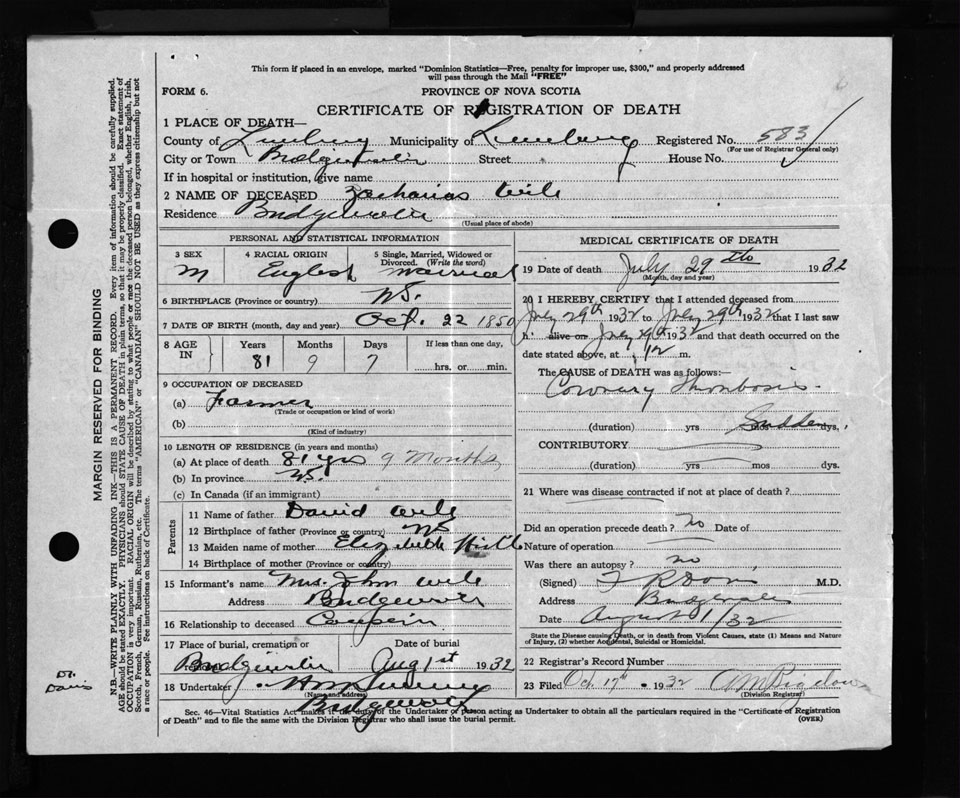 This form if placed in an envelope, marked "Dominion Statistics—Free, penalty for improper use, $300," and properly addressed
will pass through the Mail "FREE"
FORM 6.
PROVINCE OF NOVA SCOTIA
CERTIFICATE OF REGISTRATION OF DEATH
1 PLACE OF DEATH—
County of Lunenburg Municipality of Lunenburg Registered No. 583
(For use of Registrar General only)
City or Town Bridgewater Street House No.
If in hospital or institution, give name
2 NAME OF DECEASED Zacharias Wile
Residence Bridgewater
(Usual place of abode)
PERSONAL AND STATISTICAL INFORMATION
3 SEX 4 RACIAL ORIGIN 5 Single, Married, Widowed or
Divorced. (Write the word)
M English Married
6 BIRTHPLACE (Province or country) NS.
7 DATE OF BIRTH (month, day and year) Oct. 22 1850
8 AGE IN Years Months Days If less than one day,
81 9 7 hrs. or min.
9 OCCUPATION OF DECEASED
(a) Farmer
(Trade or occupation or kind of work)
(b)
(Kind of industry)
10 LENGTH OF RESIDENCE (in years and months)
(a) At place of death 81 yrs 9 Months
(b) In province NS.
(c) In Canada (if an immigrant)
Parents
11 Name of father David Wile
12 Birthplace of father (Province or country) NS
13 Maiden name of mother Elizabeth
14 Birthplace of mother (Province or country)
15 Informant's name Mrs. John Wile
Address Bridgewater
16 Relationship to deceased
17 Place of burial, cremation or Date of burial
Bridgewater Aug 1st 1932
18 Undertaker
(Name and address)
Bridgewater
MEDICAL CERTIFICATE OF DEATH
19 Date of death July 29th 1932
(Month, day and year)
20 I HEREBY CERTIFY that I attended deceased from
July 29th 1932 to July 29th 1932 that I last saw
h alive on July 29th 1932 and that death occurred on the
date stated above, at 12 m.
The CAUSE of DEATH was as follows:—
Coronary Thrombosis.
(duration) yrs mos Sudden dys.
CONTRIBUTORY
(duration) yrs mos dys.
21 Where was disease contracted if not at place of death?
Did an operation precede death? no Date of
Nature of operation
Was there an autopsy? no
(Signed) F R Davis M.D.
Address Bridgewater
Date August 1/32
State the Disease causing Death, or in death from Violent Causes, state (1) Means and Nature
of Injury, (2) whether Accidental, Suicidal or Homicidal.
22 Registrar's Record Number
23 Filed Oct 17th 1932
(Division Registrar)
Sec. 46—Vital Statistics Act makes it the duty of the Undertaker or person acting as Undertaker to obtain all the particulars required in the "Certificate of Registration
of Death" and to file the same with the Division Registrar who shall issue the burial permit.
(OVER)
MARGIN RESERVED FOR BINDING
N.B.—WRITE PLAINLY WITH UNFADING INK—THIS IS A PERMANENT RECORD. Every item of information should be carefully supplied.
AGE should be stated EXACTLY. PHYSICIANS should STATE CAUSE OF DEATH in plain terms, so that it may be properly classified. Exact statement of
OCCUPATION is very important. RACIAL ORIGIN will be described by stating to what people or race the deceased person belonged, whether English, Irish,
Scotch, French, German, Russian, Ruthenian, etc. The terms "AMERICAN" or "CANADIAN" SHOULD NOT BE USED as they express citizenship but not
a race or people. See instructions on back of Certificate.
Dr.
Davis